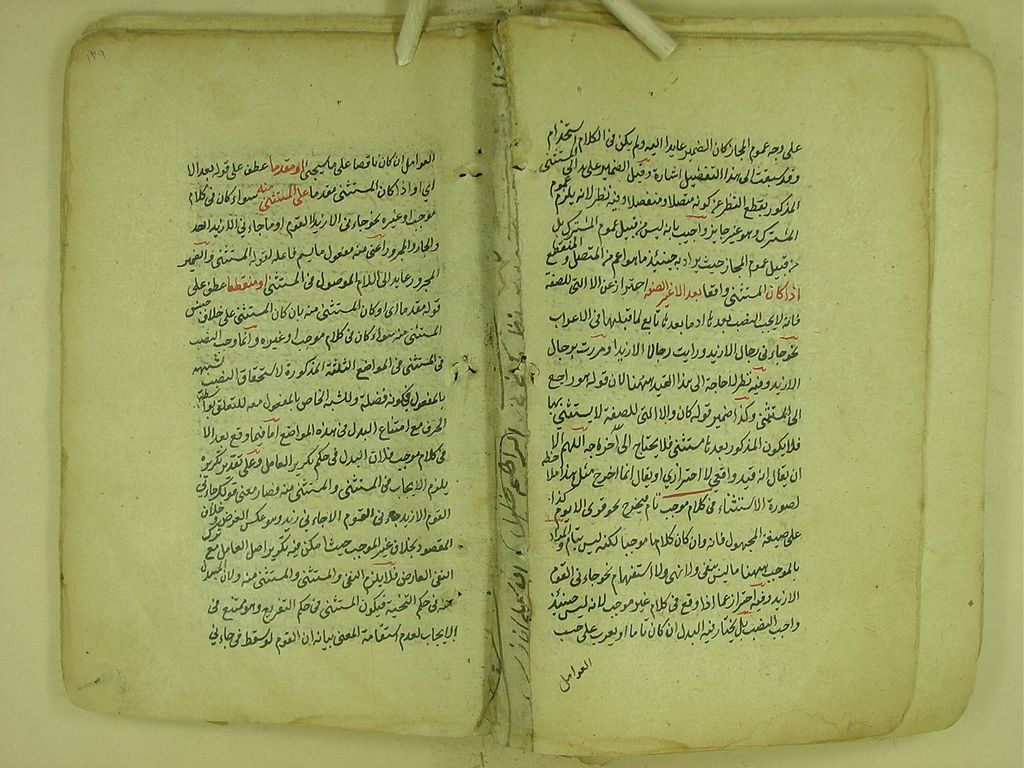 على وجه عموم المجاز كان الضمير عايدا اليه ولم يكن فى الكلام استخدام
وقد سبقت الى هذا التفضيل اشارة وقيل الضمير على هذا الى المستثنى
المذكور بقطع النظر عن كونه متصلا ومنفصلا وفيه نظر لانه يلزم عموم
المشترك وهو غير جايز واجيب بانه ليس من قبيل عموم المشترك بل
من قبيل عموم المجاز حيث يراد به حينئذ ما هو اعم من المتصل والمنقطع
اذا كان المستثنى واقعا بعد الا غير الصفة احتراز عن الا التى للصفة
فانه لا يجب النصب بعدها اذ ما بعدها تابع لما قبلها فى الاعراب
نحو جاءنى رجال الا زيد ورايت رجالا الا زيدا ومررت برجال
الا زيد وفيه نظر لا حاجة الى هذا القيد ههنا لان قوله هو راجع
الى المستثنى وكذا ضمير قوله كان والا التى للصفة لا يستثنى بها
فلا يكون المذكور بعدها مستثنى فلا يحتاج الى اخراجه اللهم الا
ان يقال انه قيد واقعى لا احترازى او يقال انما اخرج مثل هذا ملاحظة
لصورة الاستثناء فى كلام موجب تام فيخرج نحو قرى الا يوم كذا
على صيغة المجهول فانه وان كان كلاما موجبا لكنه ليس بتام والمراد
بالموجب ههنا ما ليس بنفى ولا نهى ولا استفهام نحو جاءنى القوم
الا زيدا وقوله احتراز عما اذا وقع فى كلام غير موجب لانه ليس حينئذ
واجب النصب بل يختار فيه البدل ان كان تاما او يعرب على حسب
العوامل
العوامل ان كان ناقصا على ما سيجئ او مقدما عطف على قوله بعد الا
اى او اذا كان المستثنى مقدما على المستثنى منه سواء كان فى كلام
موجب او غيره نحو جاءنى الا زيدا القوم او ما جاءنى الا زيدا احد
والجار والمجرور اعنى منه مفعول ما لم يسم فاعله لقوله المستثنى والضمير
المجرور عايد الى اللام الموصول فى المستثنى او منقطعا عطف على
قوله مقدما اى او كان المستثنى منه بان كان المستثنى على خلاف جنس
المستثنى منه سواء كان فى كلام موجب او غيره وانما وجب النصب
فى المستثنى فى المواضع الثلثة المذكورة لاستحقاق النصب لشبهه
بالمفعول فى كونه فضلة وللشبه الخاص بالمفعول معه للتعلق بواسطة
الحرف مع امتناع البدل فى هذه المواضع اما فيما وقع بعد الا
فى كلام موجب فلان البدل فى حكم تكرير العامل وعلى تقدير تكريره
يلزم الايجاب فى المستثنى والمستثنى منه وصار معنى قولك جاءنى
القوم الا زيد جاءنى القوم الا جاءنى زيد وهو عكس الغرض وخلاف
المقصود بخلاف غير الموجب حيث امكن فيه تكرير اصل العامل مع ترك
النفى العارض فلا يلزم النفى والمستثنى والمستثنى منه ولان المبدل
منه فى حكم التنحية فيكون المستثنى فى حكم التفريغ وهو ممتنع فى
الايجاب لعدم استقامة المعنى بيانه ان القوم لو سقط فى جاءنى